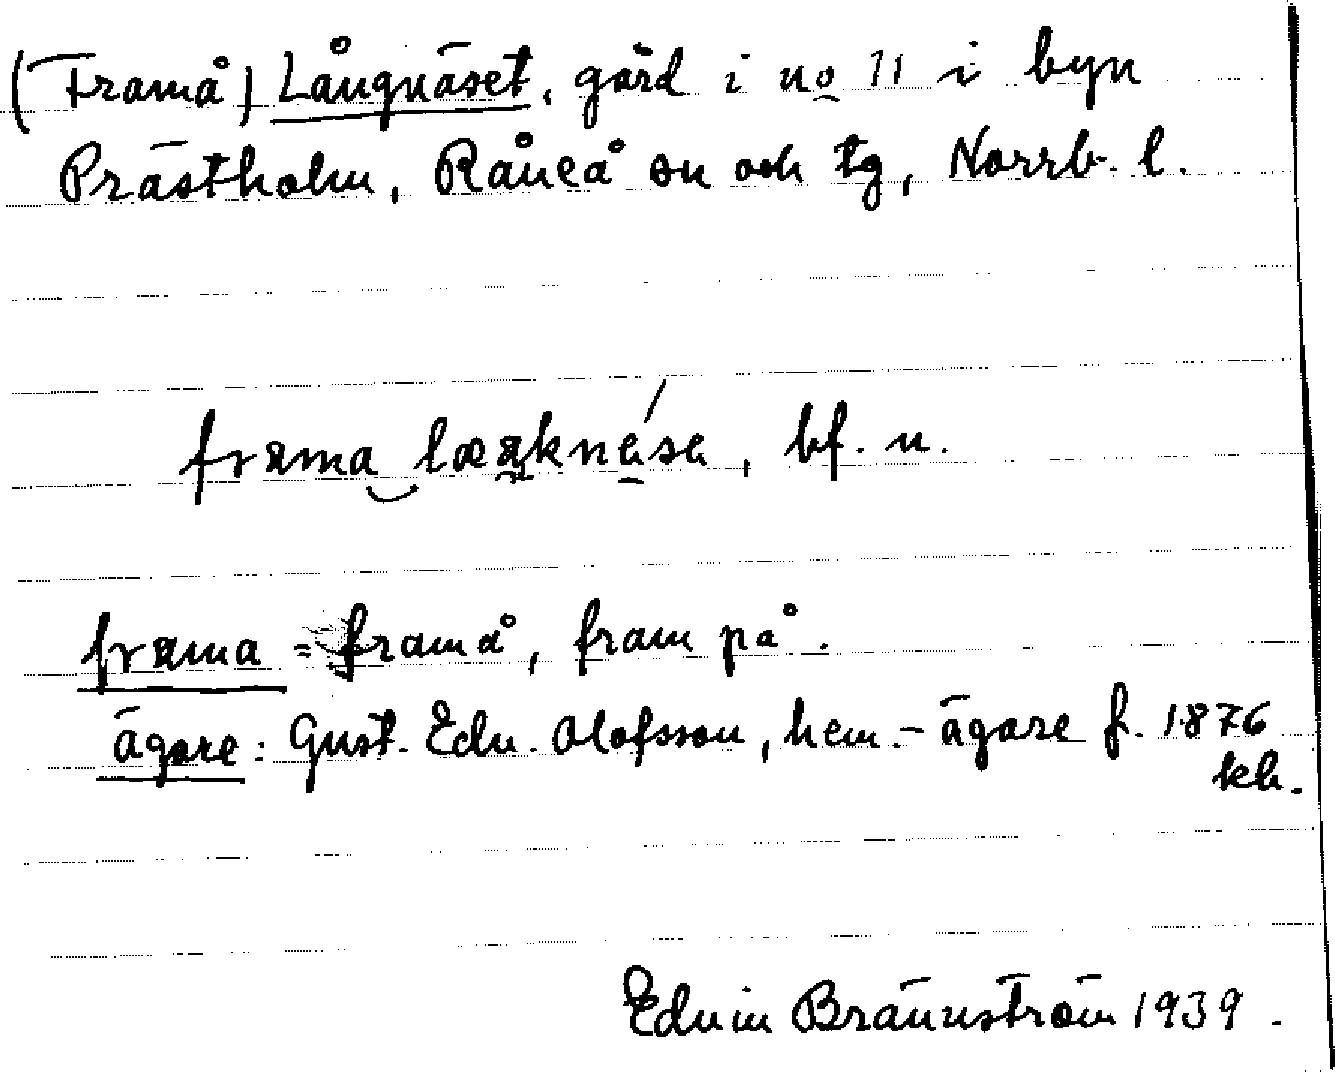 (Framå) Långnäset, gård i no 11 i byn
Prästholm, Råneå sn och tg, Norrb. l.
frama, bf. n.
frama = framå, fram på.
ägare: Gust. Edv. Olofsson, hem.-ägare f. 1876
kb.
Edvin Brännström 1939.